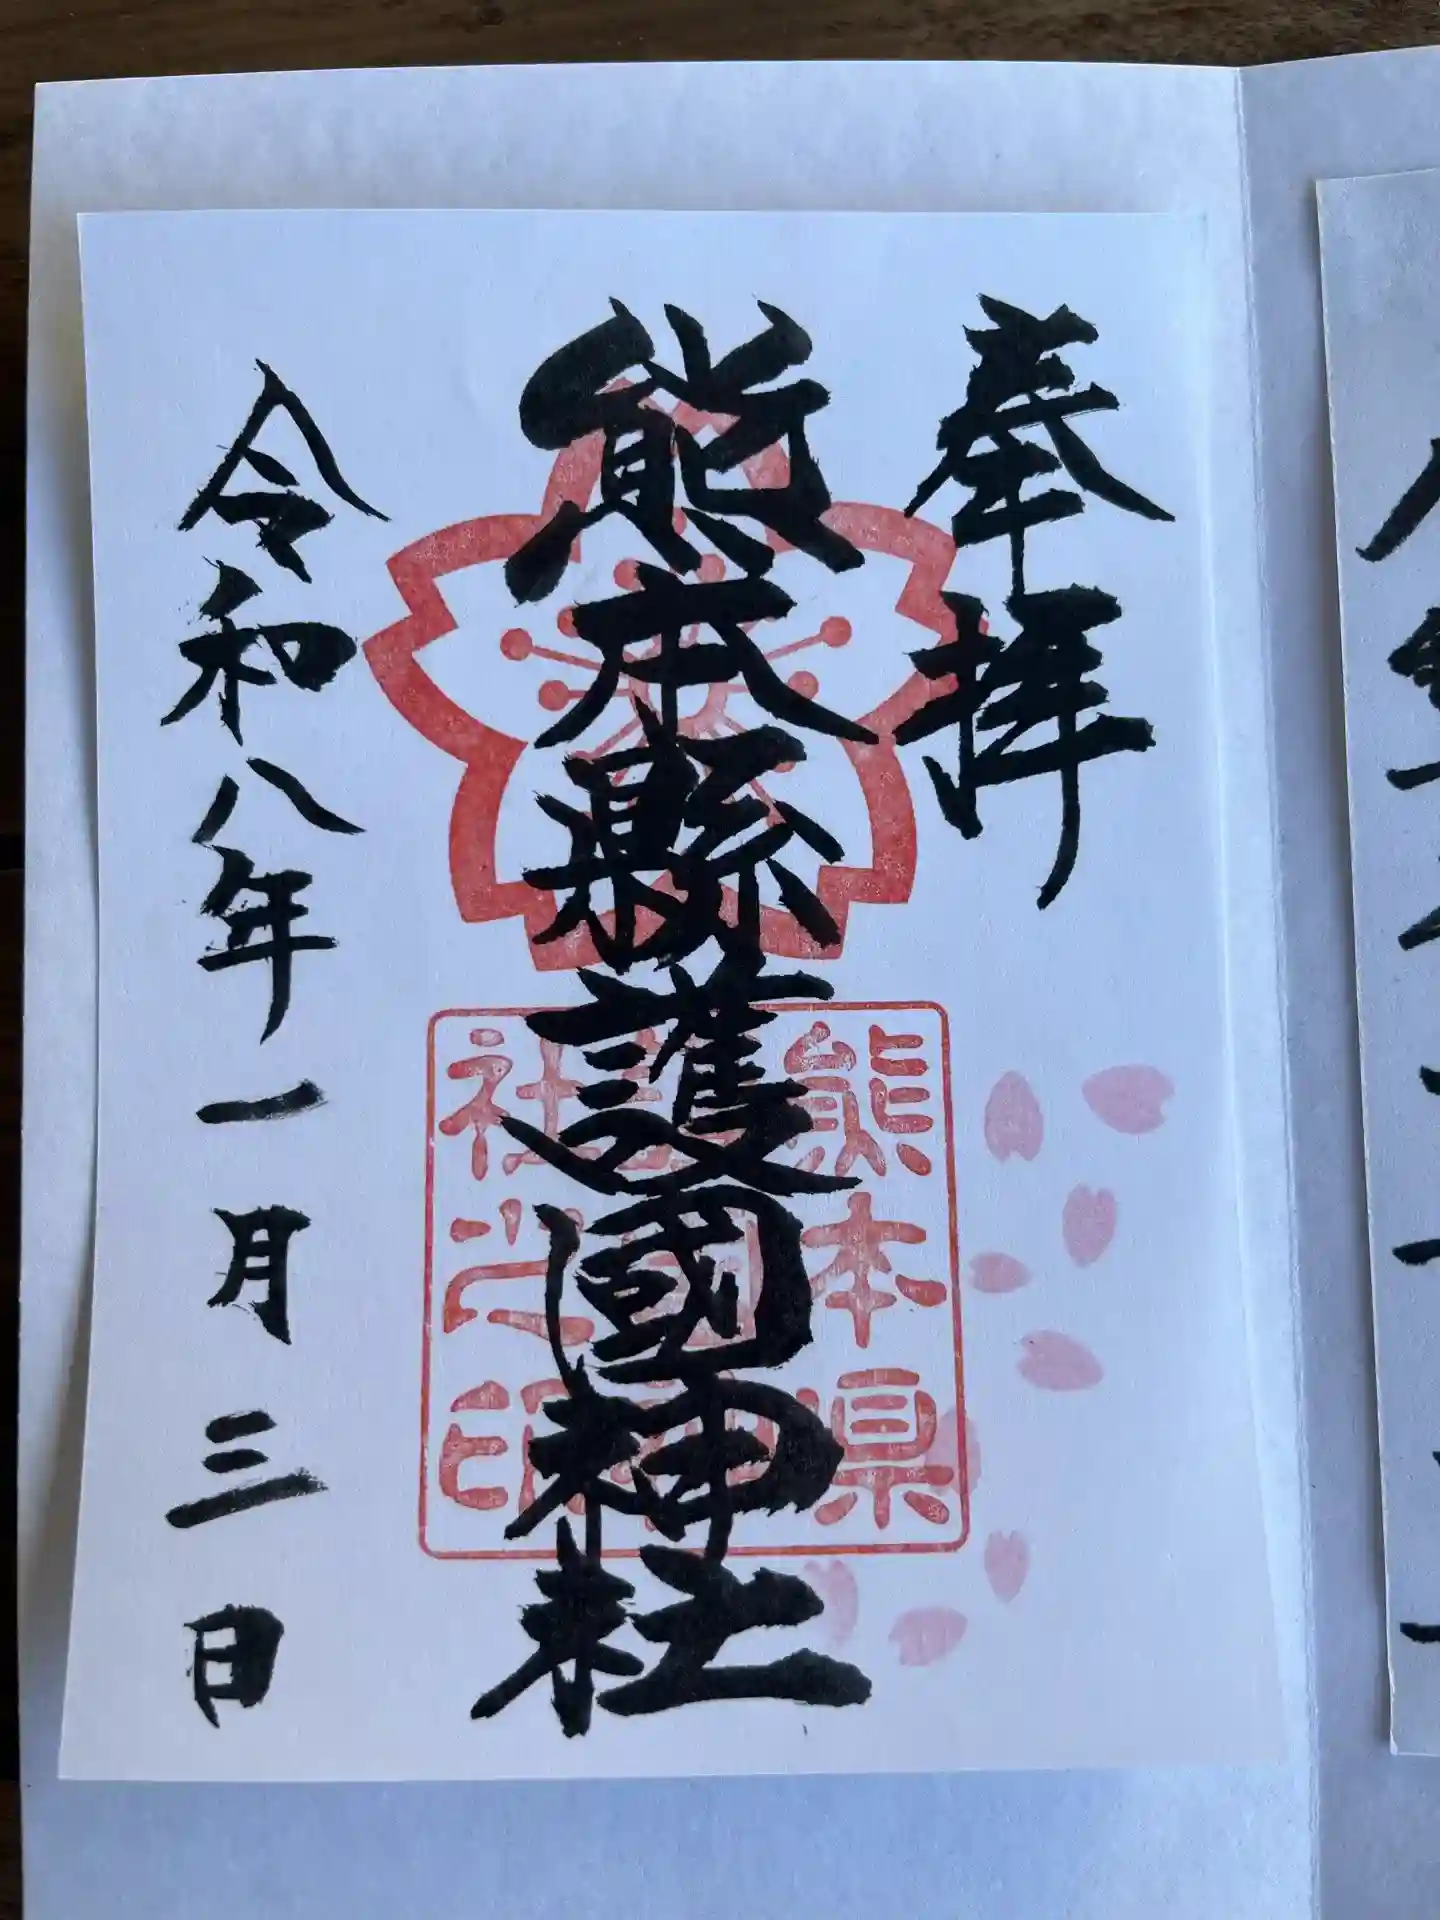 奉拝
熊本縣護國神社
熊本県
社之印
令和八年一月三日